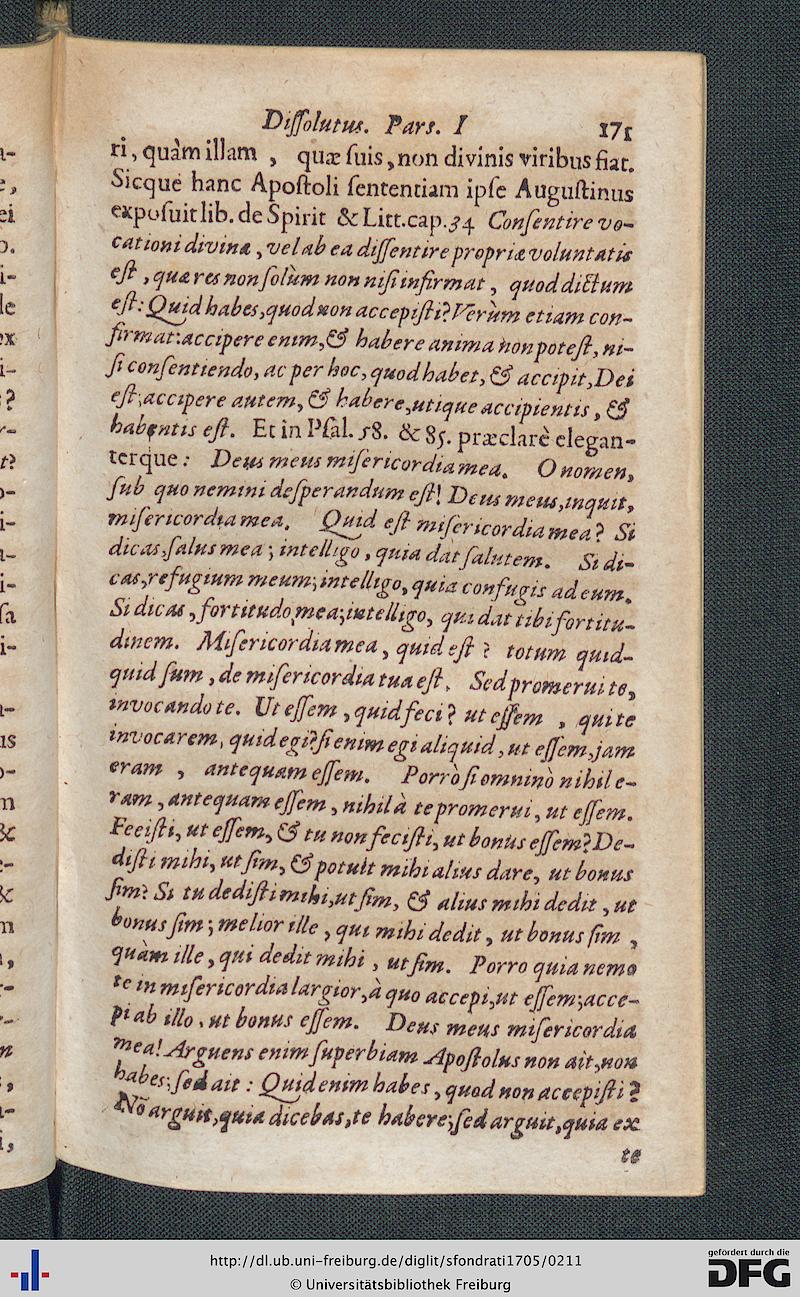 Dissolutus. Pars. I 171
ri, quàm illam , quæ suis, non divinis viribus fiat.
Sicque hanc Apostoli sententiam ipse Augustinus
exposuit lib. de Spirit & Litt. cap. 34 Consentire vo-
cationi divinæ, vel ab ea dissentire propriæ voluntatis
est, quæ res non solùm non nisi infirmat, quod dictum
est: Quid habes, quod non accepisti? Verùm etiam con-
firmat: accipere enim, & habere anima non potest, ni-
si consentiendo, ac per hoc, quod habet, & accipit, Dei
est; accipere autem, & habere, utique accipientis, &
habentis est. Et in Psal. 58. & 85. præclarè elegan-
terque: Deus meus misericordia mea. O nomen,
sub quo nemini desperandum est! Deus meus, inquit,
misericordia mea. Quid est misericordia mea? Si
dicas, salus mea; intelligo, quia dat salutem. Si di-
cas, refugium meum; intelligo, quia confugis ad eum.
Si dicas, fortitudo mea; intelligo, qui dat tibi fortitu-
dinem. Misericordia mea, quid est? totum quid-
quid sum, de misericordia tua est. Sed promerui te,
invocando te. Ut essem, quid feci? ut essem , qui te
invocarem, quid egi? si enim egi aliquid, ut essem, jam
eram , antequam essem. Porrò si omninò nihil e-
ram, antequam essem, nihil à te promerui, ut essem.
Fecisti, ut essem, & tu non fecisti, ut bonus essem? De-
disti mihi, ut sim, & potuit mihi alius dare, ut bonus
sim? Si tu dedisti mihi, ut sim, & alius mihi dedit, ut
bonus sim; melior ille, qui mihi dedit, ut bonus sim ,
quàm ille, qui dedit mihi, ut sim. Porro quia nemo
te in misericordia largior, à quo accepi, ut essem; acce-
pi ab illo, ut bonus essem. Deus meus misericordia
mea! Arguens enim superbiam Apostolus non ait, non
habes; sed ait: Quid enim habes, quod non accepisti?
Nō arguit, quia dicebas, te habere; sed arguit, quia ex
te
http://dl.ub.uni-freiburg.de/diglit/sfondrati1705/0211
© Universitätsbibliothek Freiburg
gefördert durch die
DFG